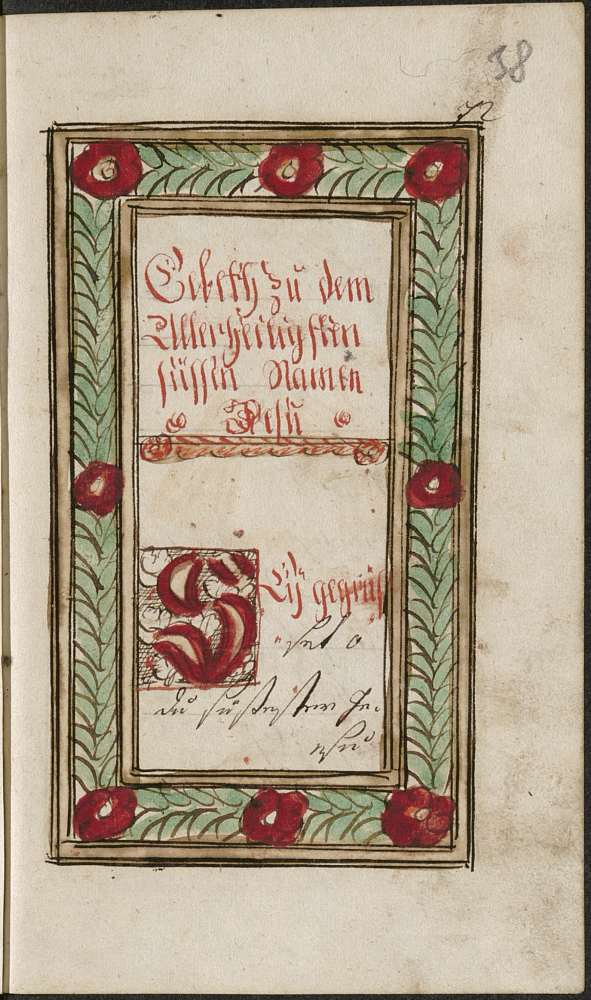 38
72
Gebeth zu dem
Allerheiligsten
süssen Namen
Jesu
Seÿ gegrüs
set o
du süssester Je-